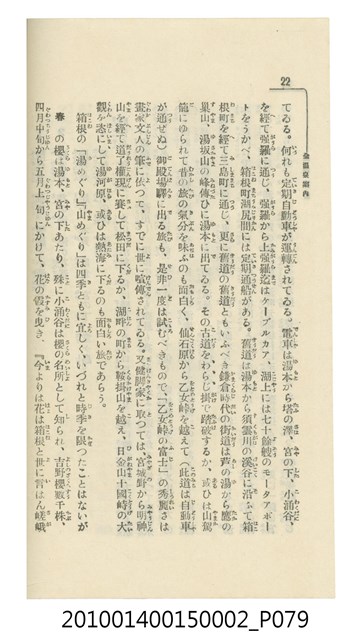 22
金湯堂案内
てゐる。何れも定期自動車が運轉されてゐる。電車は湯本から塔の澤、宮の下、小涌谷、
を經て强羅に通じ、强羅から上强羅迄はケーブルカア、湖上には七十餘艘のモータアボー
トをうかべ、箱根町湖尻間には定期通船がある。舊道は湯本から須雲川の溪谷に沿ふて箱
根町を經て三島町に通じ、更に舊道の舊道ともいふべき鎌倉時代の街道は芦の湯から鷹の
巢山、湯坂山の峰傳ひに湯本に出てゐる。その古道をわらじ掛で踏破するか、或ひは山駕
籠にゆられて昔の旅の氣分を味ふのも面白く、仙石原から乙女峠を越えて(此道は自動車
が通ぜぬ)御殿場驛に出る旅も、是非一度は試むべきもので、「乙女峠の富士」の秀麗さは
畫家文人の筆に依つて、すでに世に喧傳されてゐる。又健脚家に取つては、宮城野から明神
山を經て道了權現に賽して松田に下るか、湖畔の町から鞍掛山を越え、日金山十國峠の大
觀を恣にして湯河原、或ひは熱海に下るのも面白い旅であらう。
箱根の「湯めぐり」「山めぐり」は四季ともに宜しく、いづれと時季を限つたことはないが
春 の櫻は湯本、宮の下あたり、殊に小涌谷は櫻の名所として知られ、吉野櫻數千株、
四月中旬から五月上旬にかけて、花の雲を曳き、『今よりは花は箱根と世に言はん嵯峨
201001400150002_P079